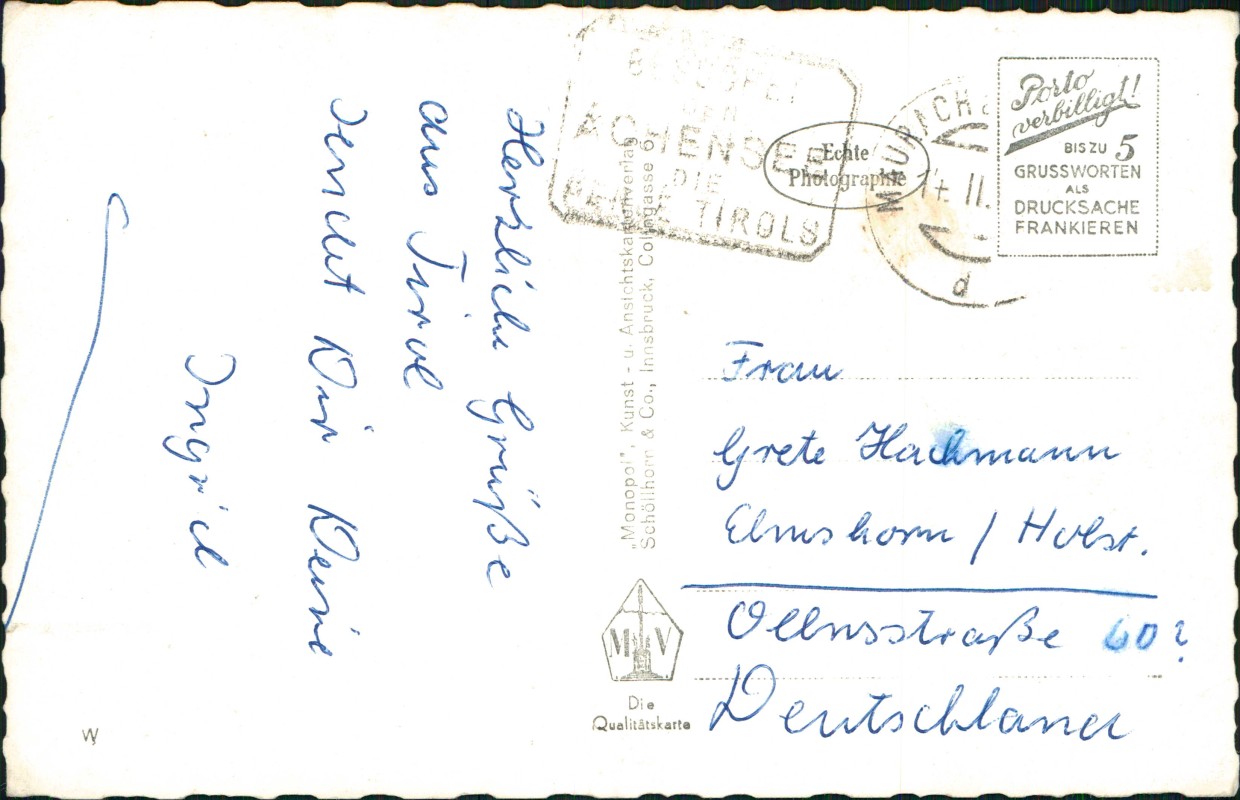 Herzliche Grüße
aus Tirol
sendet Dir Deine
Ingrid
BESUCHET
DEN
ACHENSEE
DIE
PERLE TIROLS
Echte
Photographie
MAURACH
14. II.
d
Porto
verbilligt!
BIS ZU 5
GRUSSWORTEN
ALS
DRUCKSACHE
FRANKIEREN
„Monopol", Kunst - u. Ansichtskartenverlag
Schöllhorn & Co., Innsbruck, Colingasse 6
Frau
Grete Hachmann
Elmshorn / Holst.
Ollnsstraße 60?
Deutschland
M V
Die
Qualitätskarte
W